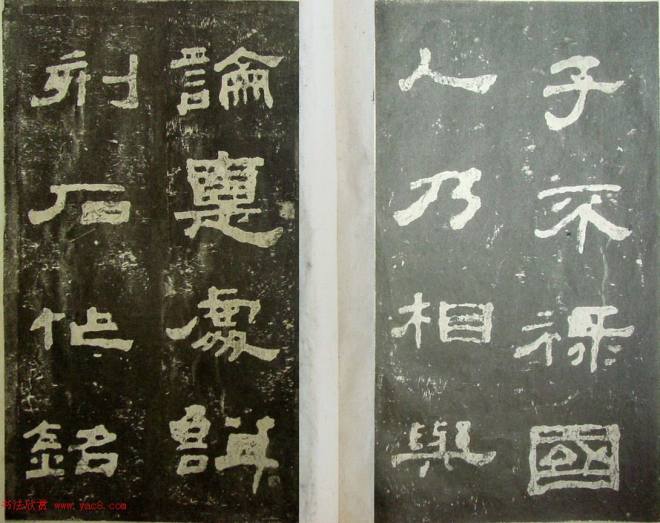 子不祿國
人乃相與
論悳處謚
刻石作銘
书法欣赏 www.yac8.com